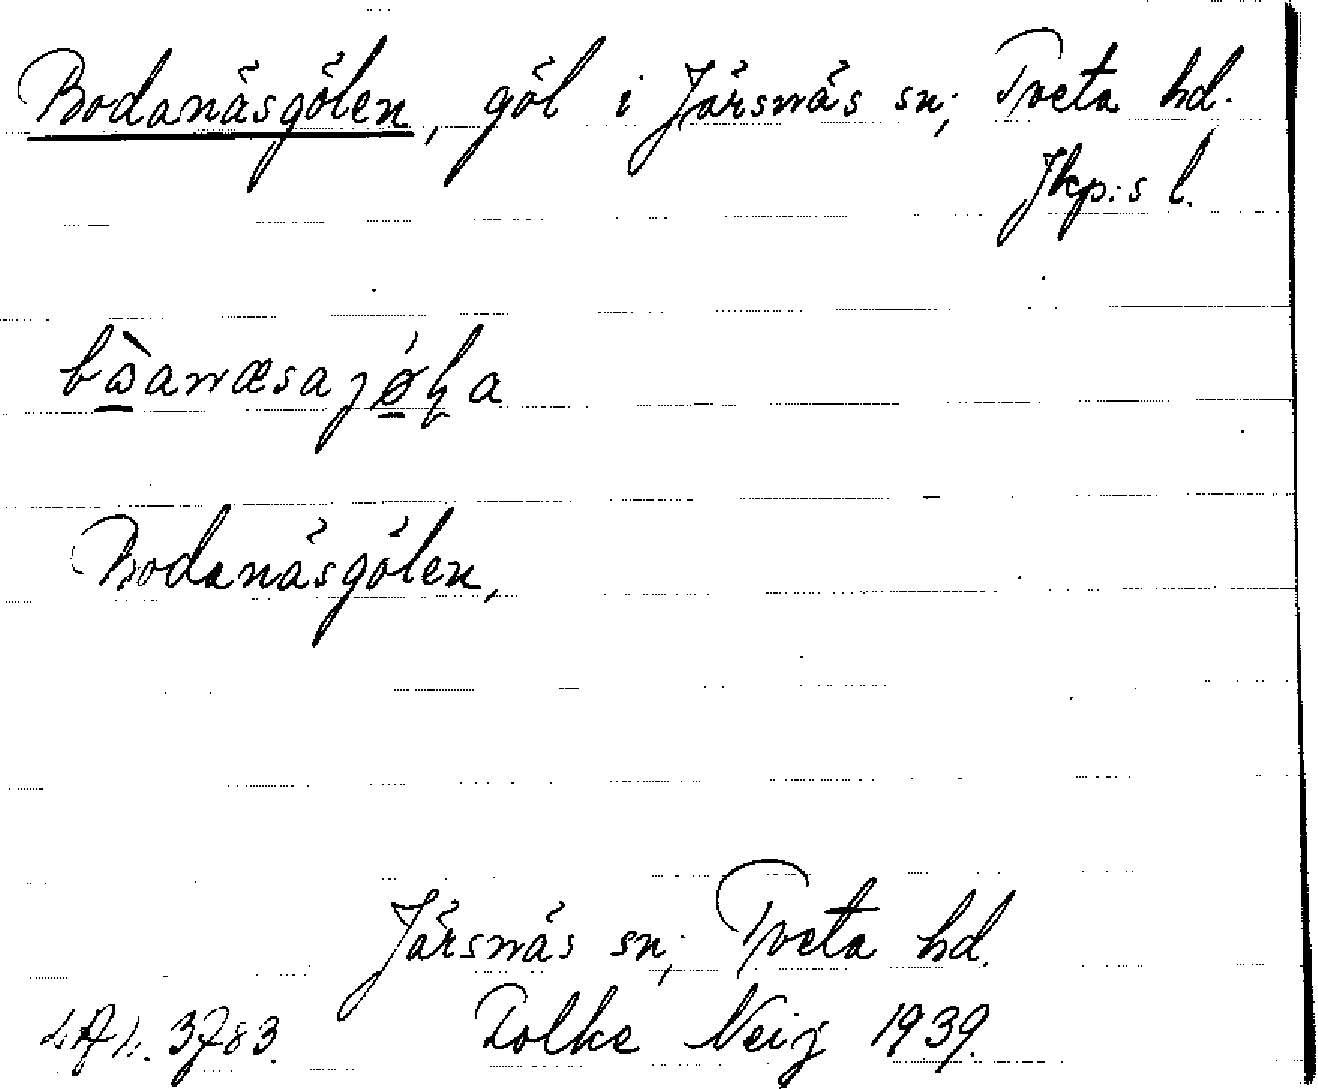 Bodanäsgölen, göl i Järsnäs sn; Tveta hd.
Jkp:s l.
Bodanäsgölen,
Järsnäs sn; Tveta hd.
3783. Folke Neij 1939.